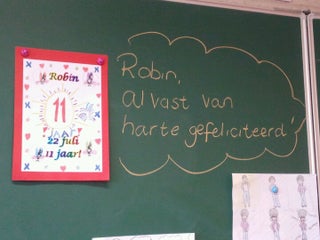 Robin
11
JAAR
22 juli
11 jaar!
Robin,
alvast van
harte gefeliciteerd!